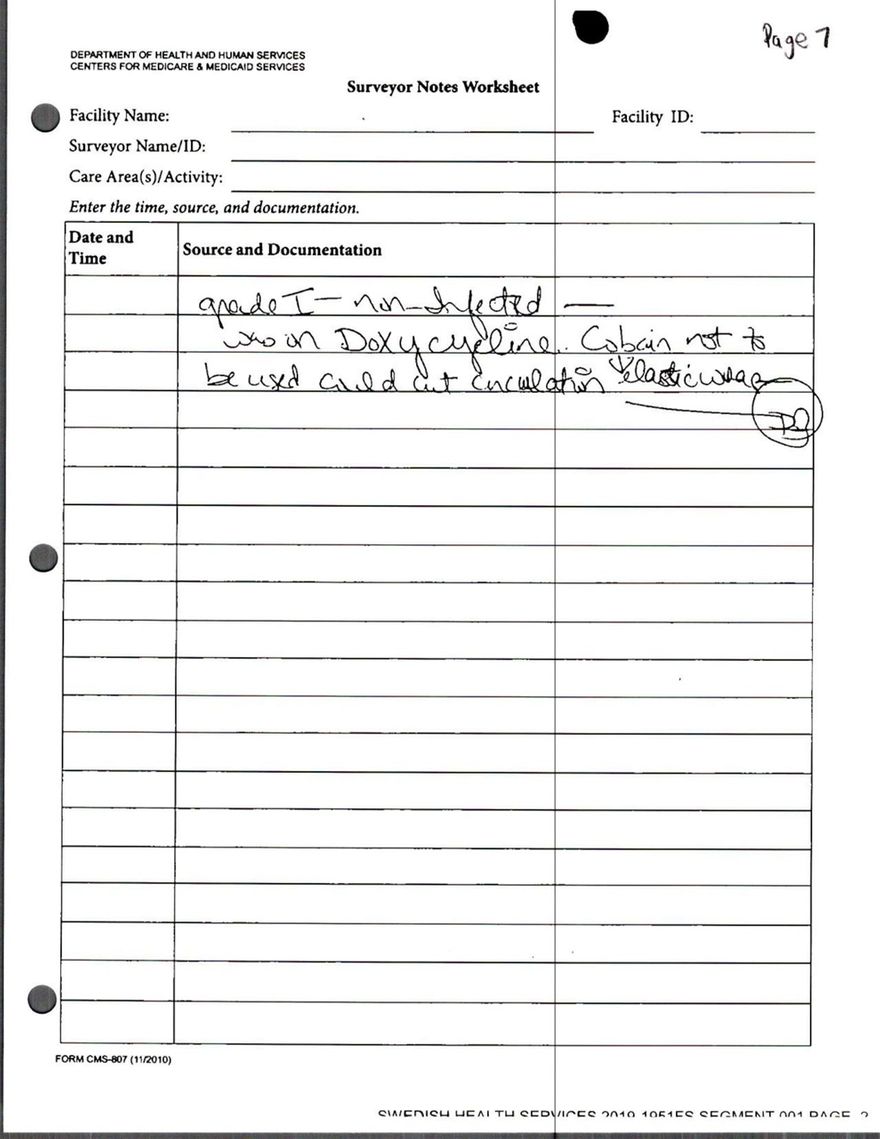 Page 7
DEPARTMENT OF HEALTH AND HUMAN SERVICES
CENTERS FOR MEDICARE & MEDICAID SERVICES
Surveyor Notes Worksheet
Facility Name:
Facility ID:
Surveyor Name/ID:
Care Area(s)/Activity:
Enter the time, source, and documentation.
Date and Time
Source and Documentation
grade I - non-Infected —
was on Doxycycline. Coban not to
be used could cut circulation elastic wrap
FORM CMS-807 (11/2010)
SWEDISH HEALTH SERVICES 2019 1951ES SEGMENT 001 PAGE